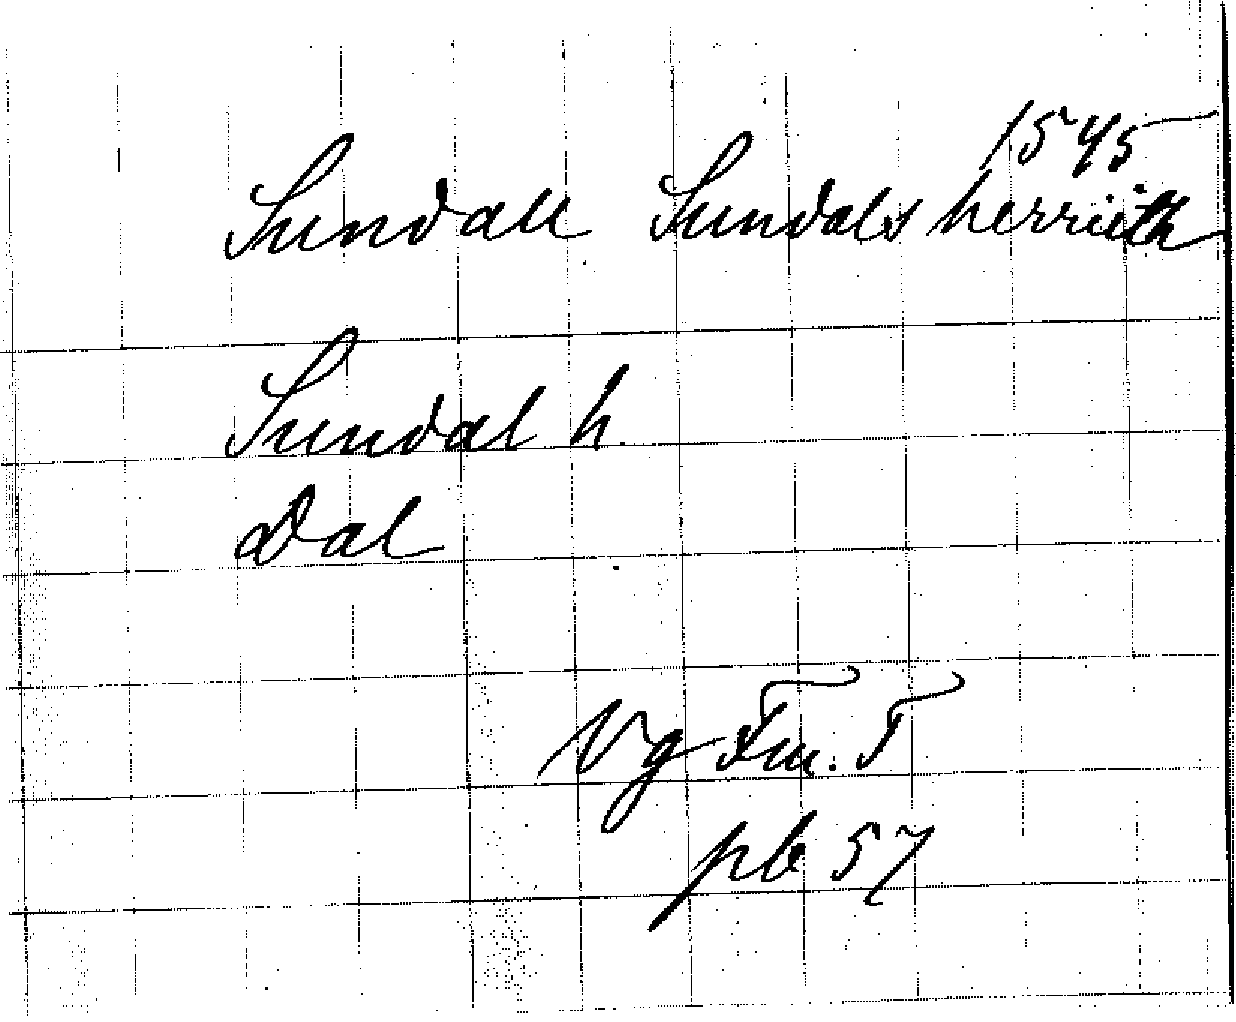 1545
Sundall Sundals herrieth
Sundal h.
Dal
Vg Fm. T
pb 57